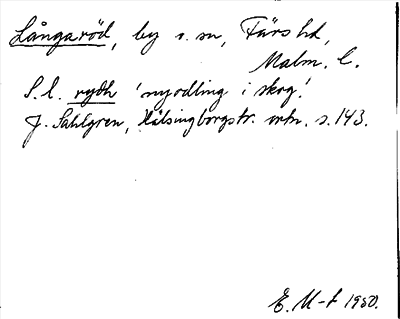 Långaröd, by s. sn, Färs hd,
Malm. l.
S. l. rydh 'nyodling i skog'.
J. Sahlgren, Hälsingborgstr. ortn. s. 143.
E. M-t 1950.